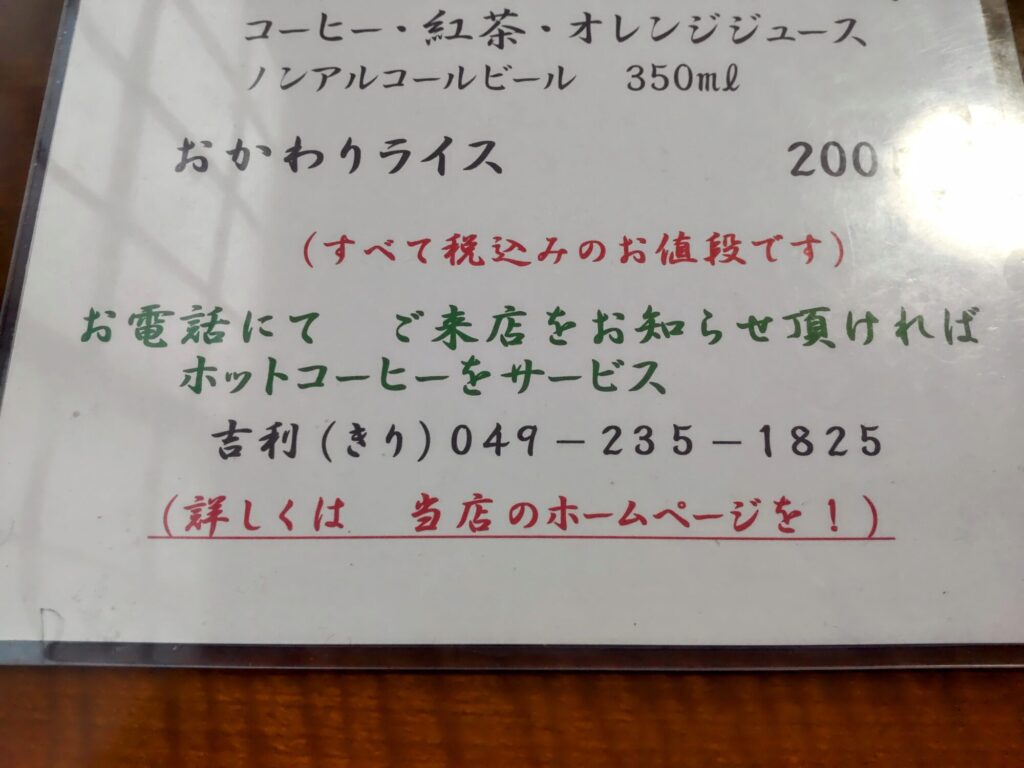 コーヒー・紅茶・オレンジジュース
ノンアルコールビール 350mℓ
おかわりライス 200
(すべて税込みのお値段です)
お電話にて ご来店をお知らせ頂ければ
ホットコーヒーをサービス
吉利(きり)049－235－1825
(詳しくは 当店のホームページを！)